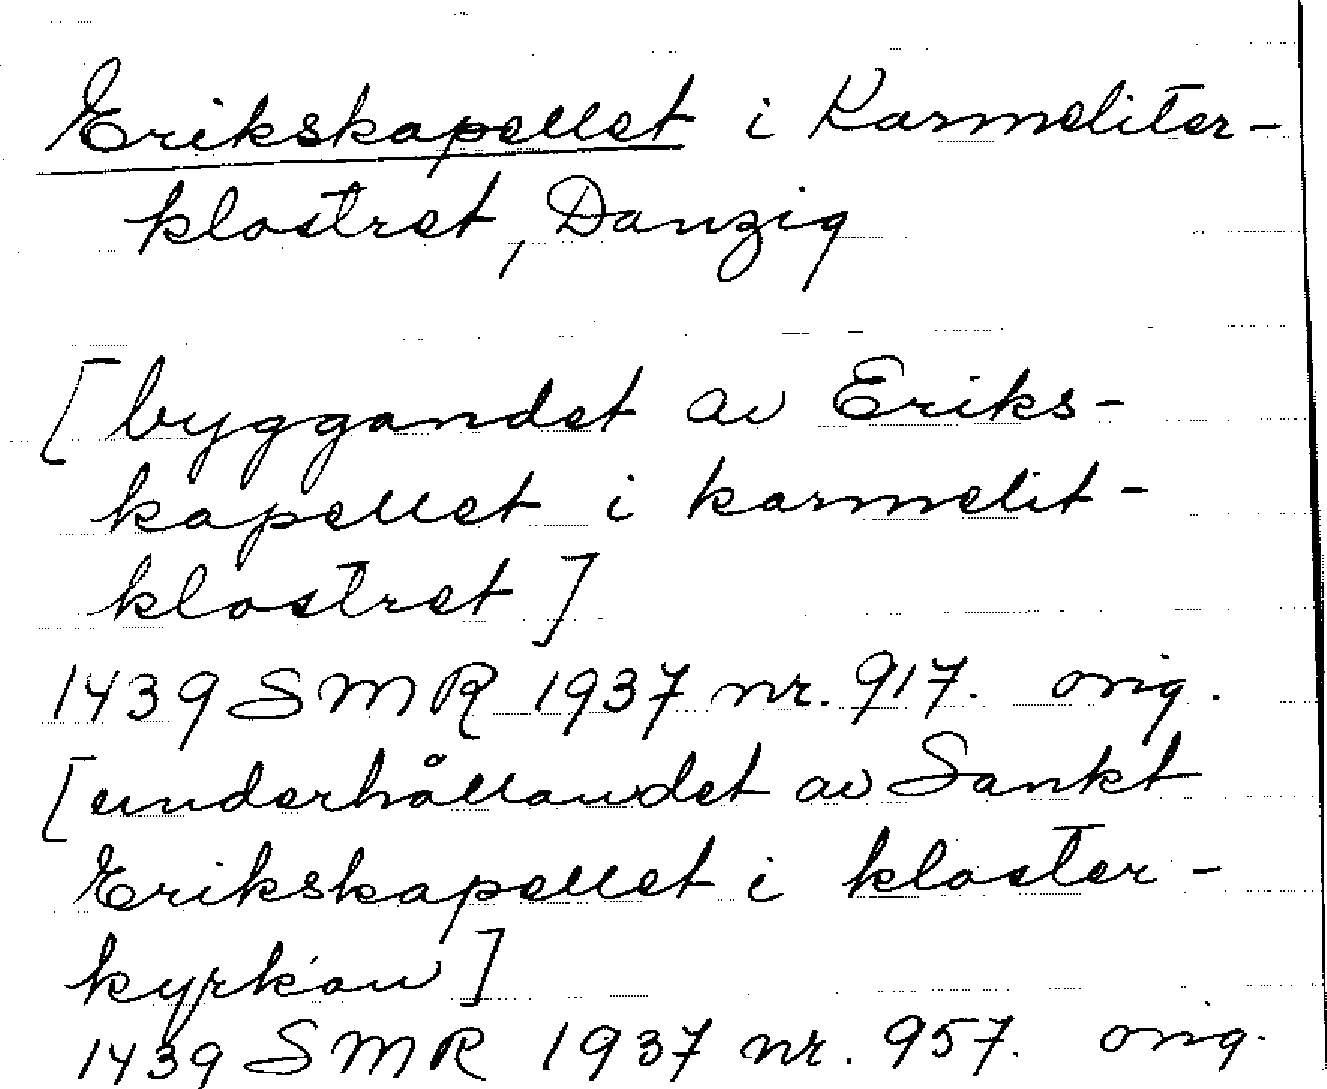 Erikskapellet i Karmeliter-
klostret, Danzig
[byggandet av Eriks-
kapellet i karmelit-
klostret]
1439 SMR 1937 nr. 917. orig.
[underhållandet av Sankt
Erikskapellet i kloster-
kyrkan]
1439 SMR 1937 nr. 957. orig.